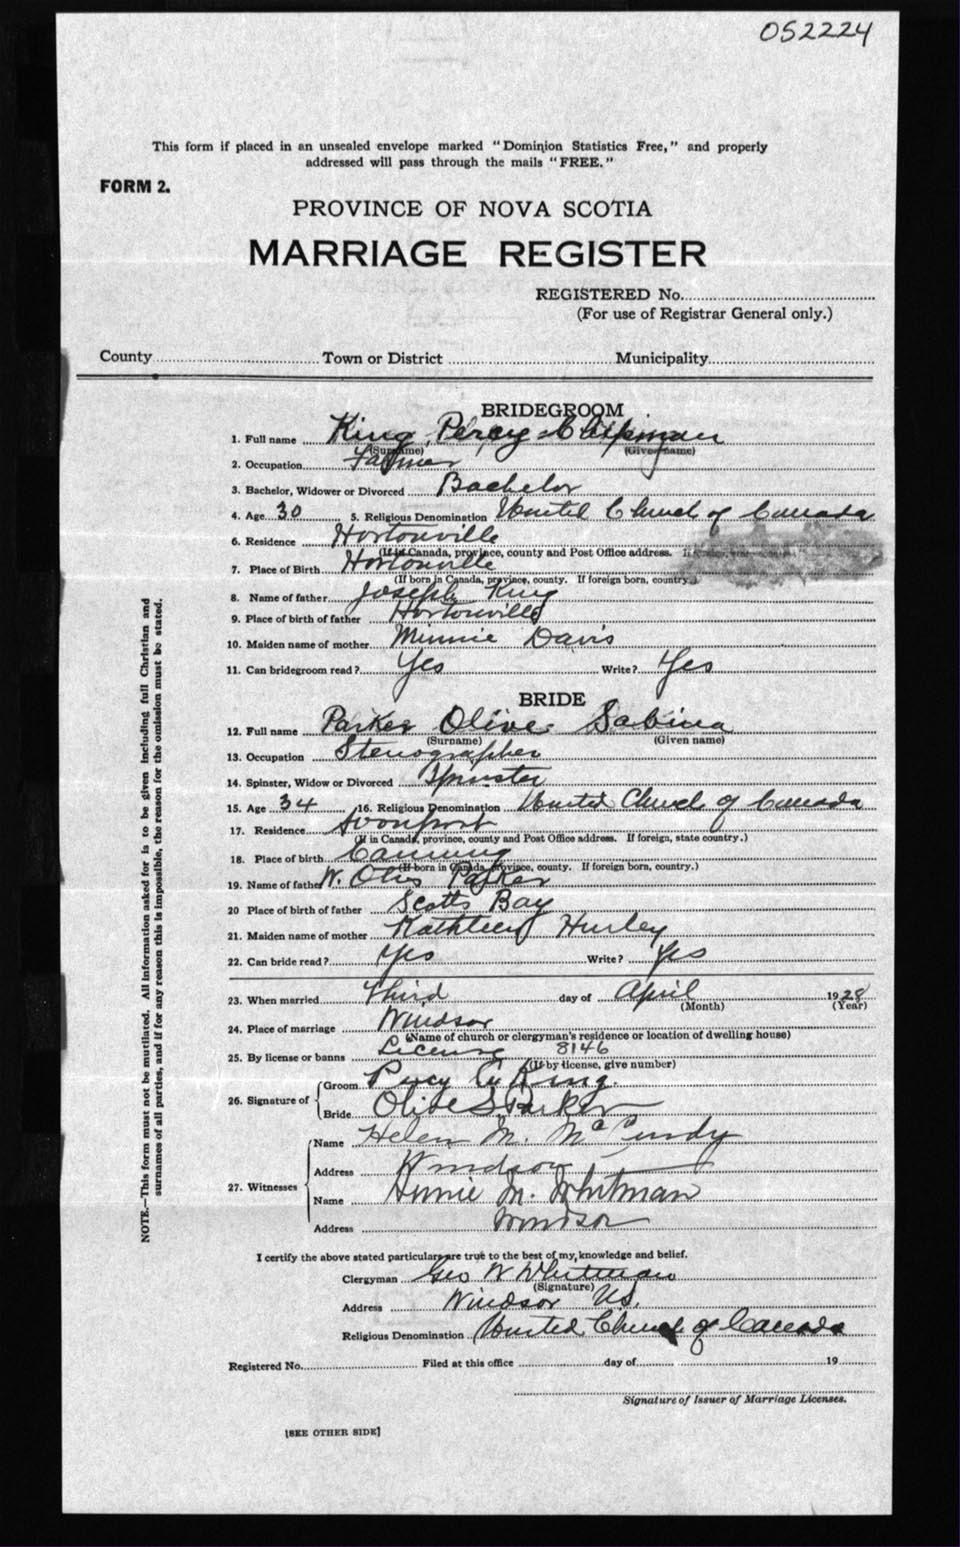 052224
This form if placed in an unsealed envelope marked "Dominion Statistics Free," and properly
addressed will pass through the mails "FREE."
FORM 2.
PROVINCE OF NOVA SCOTIA
MARRIAGE REGISTER
REGISTERED No.
(For use of Registrar General only.)
County Town or District Municipality
BRIDEGROOM
1. Full name King, Percy Chipman
(Surname) (Given name)
2. Occupation Farmer
3. Bachelor, Widower or Divorced Bachelor
4. Age 30 5. Religious Denomination United Church of Canada
6. Residence Hortonville
(If in Canada, province, county and Post Office address.
7. Place of Birth Hortonville
(If born in Canada, province, county. If foreign born, country.)
8. Name of father Joseph King
9. Place of birth of father Hortonville
10. Maiden name of mother Minnie Davis
11. Can bridegroom read? Yes Write? Yes
BRIDE
12. Full name Parker Olive Sabina
(Surname) (Given name)
13. Occupation Stenographer
14. Spinster, Widow or Divorced Spinster
15. Age 34 16. Religious Denomination United Church of Canada
17. Residence Avonport
(If in Canada, province, county and Post Office address. If foreign, state country.)
18. Place of birth Canning
(If born in Canada, province, county. If foreign born, country.)
19. Name of father W. Otis Parker
20 Place of birth of father Scotts Bay
21. Maiden name of mother Kathleen Hurley
22. Can bride read? Yes Write? Yes
23. When married Third day of April 1928
(Month) (Year)
24. Place of marriage Windsor
(Name of church or clergyman's residence or location of dwelling house)
25. By license or banns License 8146
(If by license, give number)
26. Signature of Groom Percy C. King.
Bride Olive S. Parker
27. Witnesses Name Helen M. McCurdy
Address Windsor
Name Annie M. Whitman
Address Windsor
I certify the above stated particulars are true to the best of my knowledge and belief.
Clergyman Geo W Whitman
(Signature)
Address Windsor N.S.
Religious Denomination United Church of Canada
Registered No. Filed at this office day of 19
Signature of Issuer of Marriage Licenses.
[SEE OTHER SIDE]
NOTE.—This form must not be mutilated. All information asked for is to be given including full Christian and
surnames of all parties, and if for any reason this is impossible, the reason for the omission must be stated.